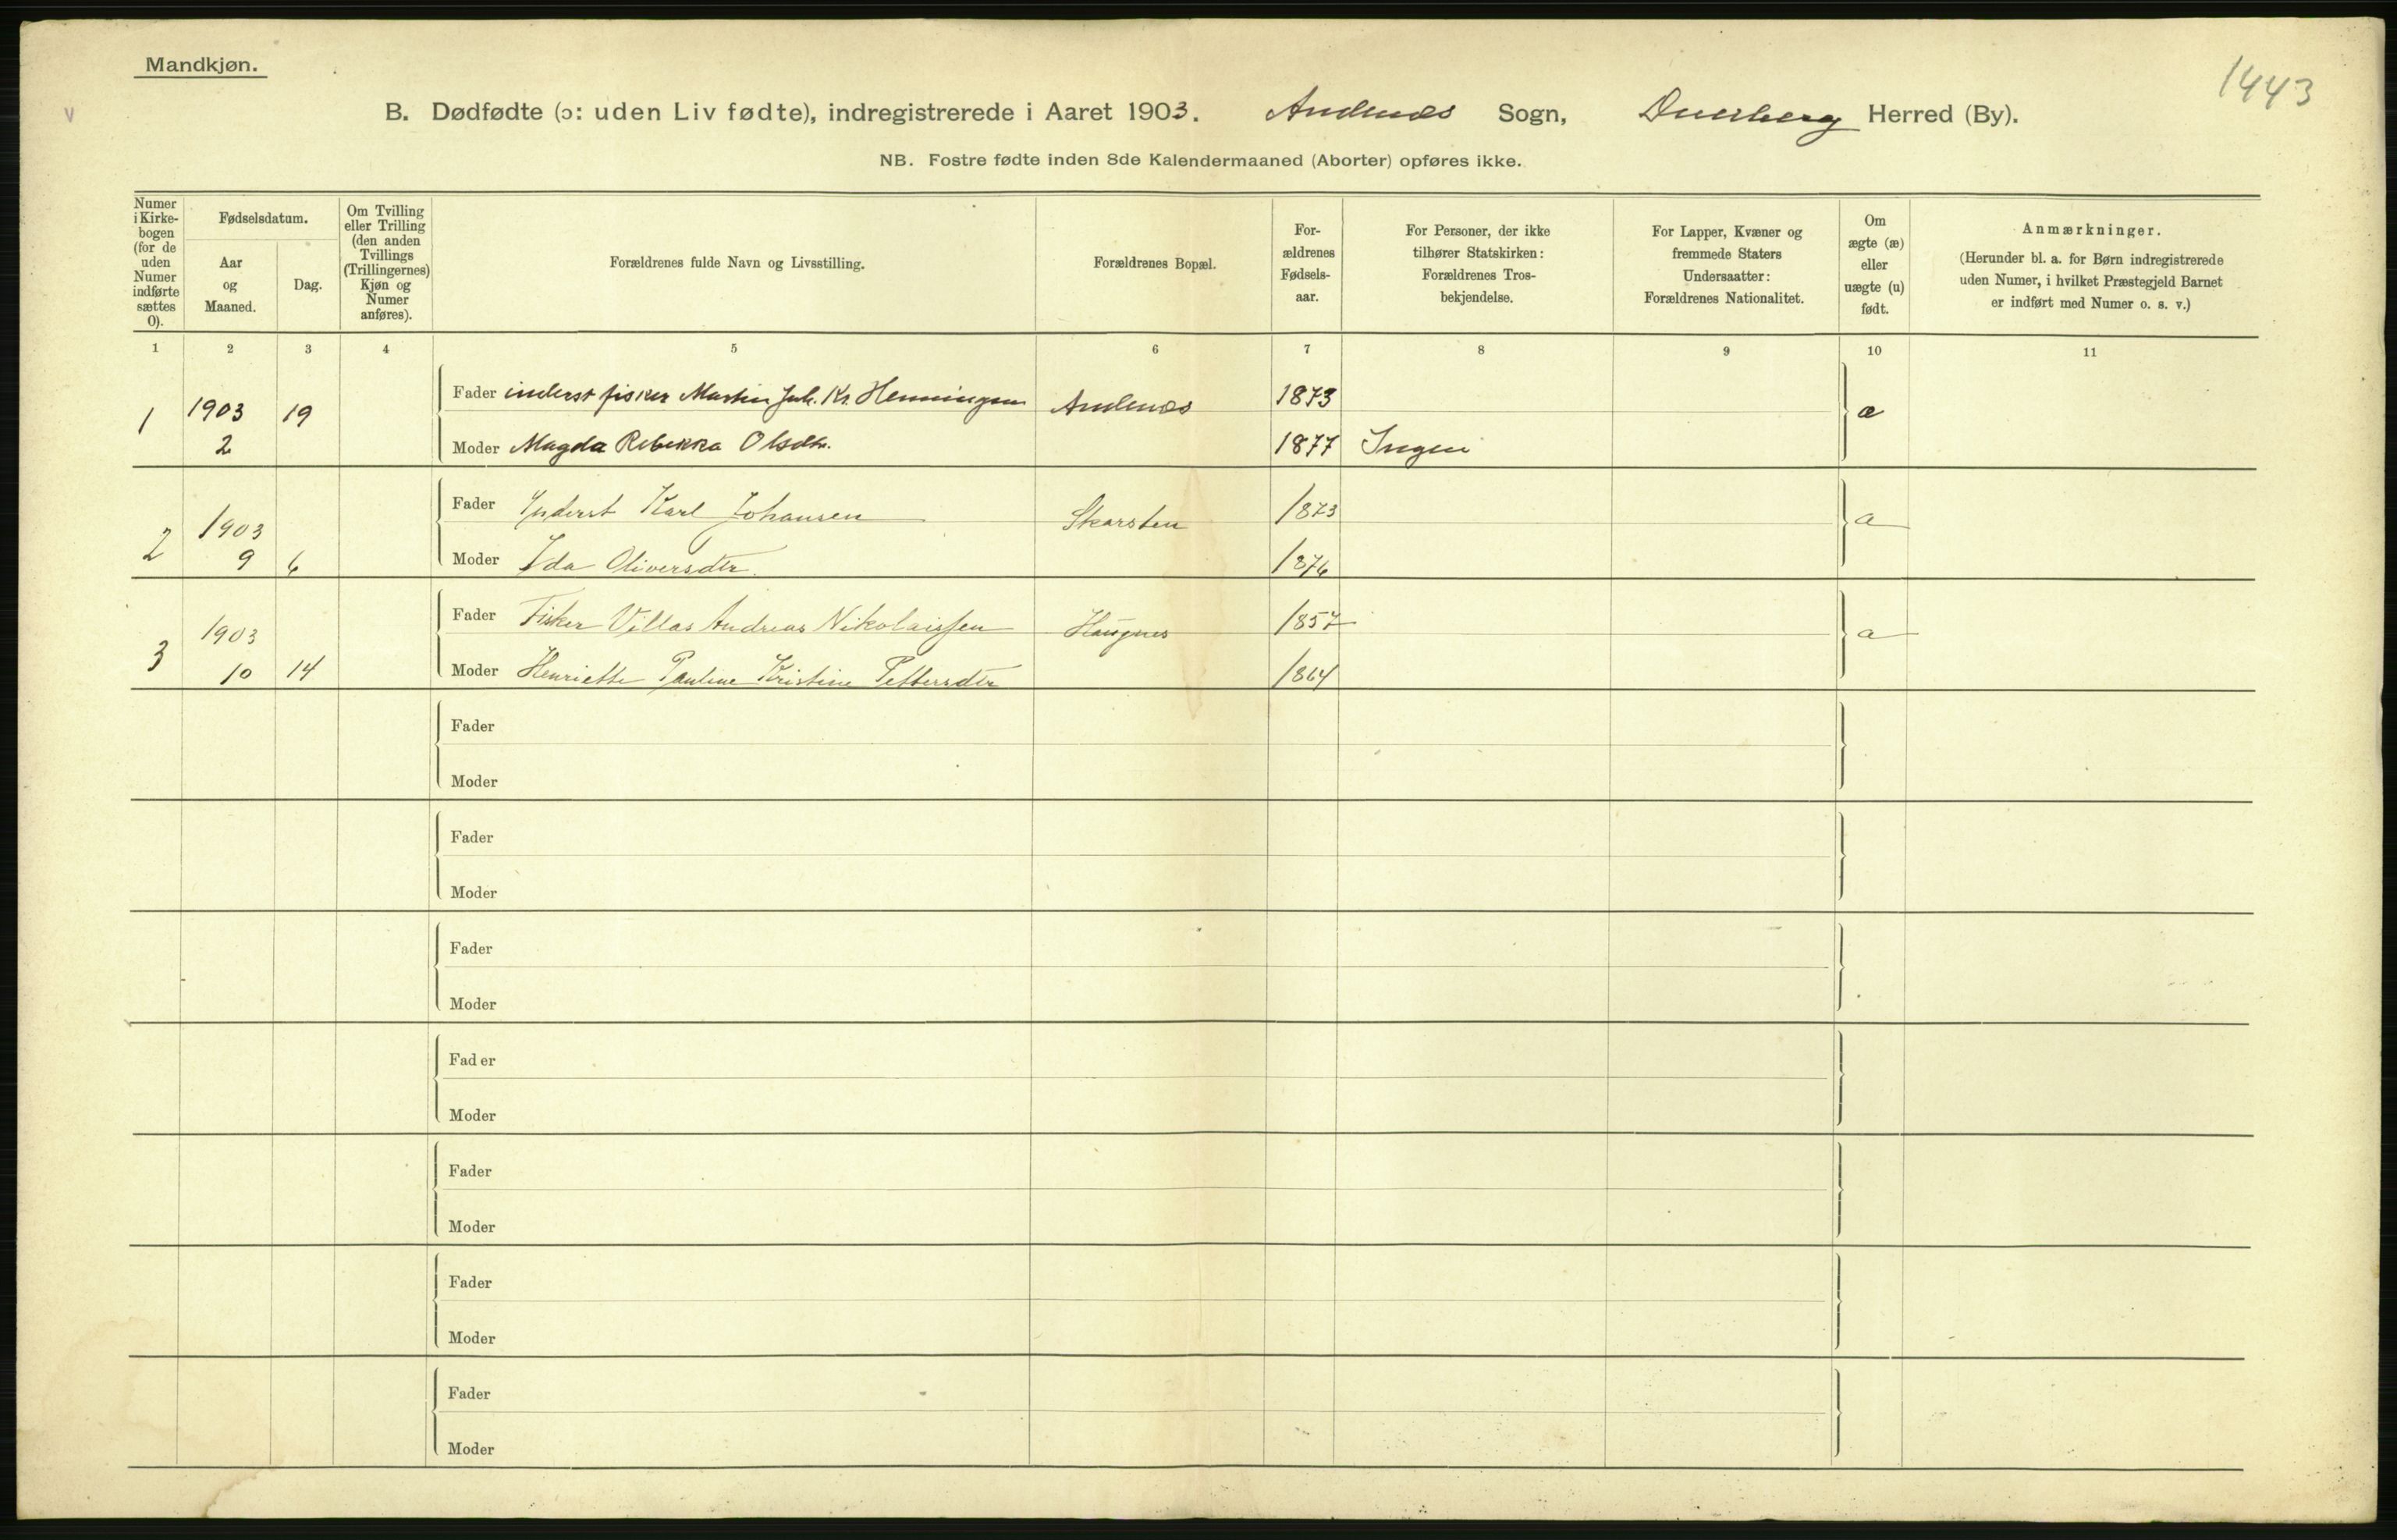 Mandkjøn.
1443
B. Dødfødte (ɔ: uden Liv fødte), indregistrerede i Aaret 1903. Andenæs Sogn, Dverberg Herred (By).
NB. Fostre fødte inden 8de Kalendermaaned (Aborter) opføres ikke.
Numer i Kirkebogen (for de uden Numer indførte sættes 0).
Fødselsdatum.
Aar og Maaned.
Dag.
Om Tvilling eller Trilling (den anden Tvillings (Trillingernes) Kjøn og Numer anføres).
Forældrenes fulde Navn og Livsstilling.
Forældrenes Bopæl.
Forældrenes Fødselsaar.
For Personer, der ikke tilhører Statskirken: Forældrenes Trosbekjendelse.
For Lapper, Kvæner og fremmede Staters Undersaatter: Forældrenes Nationalitet.
Om ægte (æ) eller uægte (u) født.
Anmærkninger.
(Herunder bl. a. for Børn indregistrerede uden Numer, i hvilket Præstegjeld Barnet er indført med Numer o. s. v.)
1 2 3 4 5 6 7 8 9 10 11
1 1903 19 Fader inderst fisker Martin Joh. Kr. Henningsen Andenæs 1873 æ
2 Moder Magda Rebekka Olsdtr. 1877 Ingen
2 1903 Fader Inderst Karl Johansen Skarsten 1873 æ
9 6 Moder Ida Oliversdtr. 1876
3 1903 Fader Fisker Villas Andreas Nikolaissen Haugnes 1857 æ
10 14 Moder Henriette Pauline Kristine Pettersdtr 1864
Fader
Moder
Fader
Moder
Fader
Moder
Fader
Moder
Fader
Moder
Fader
Moder
Fader
Moder